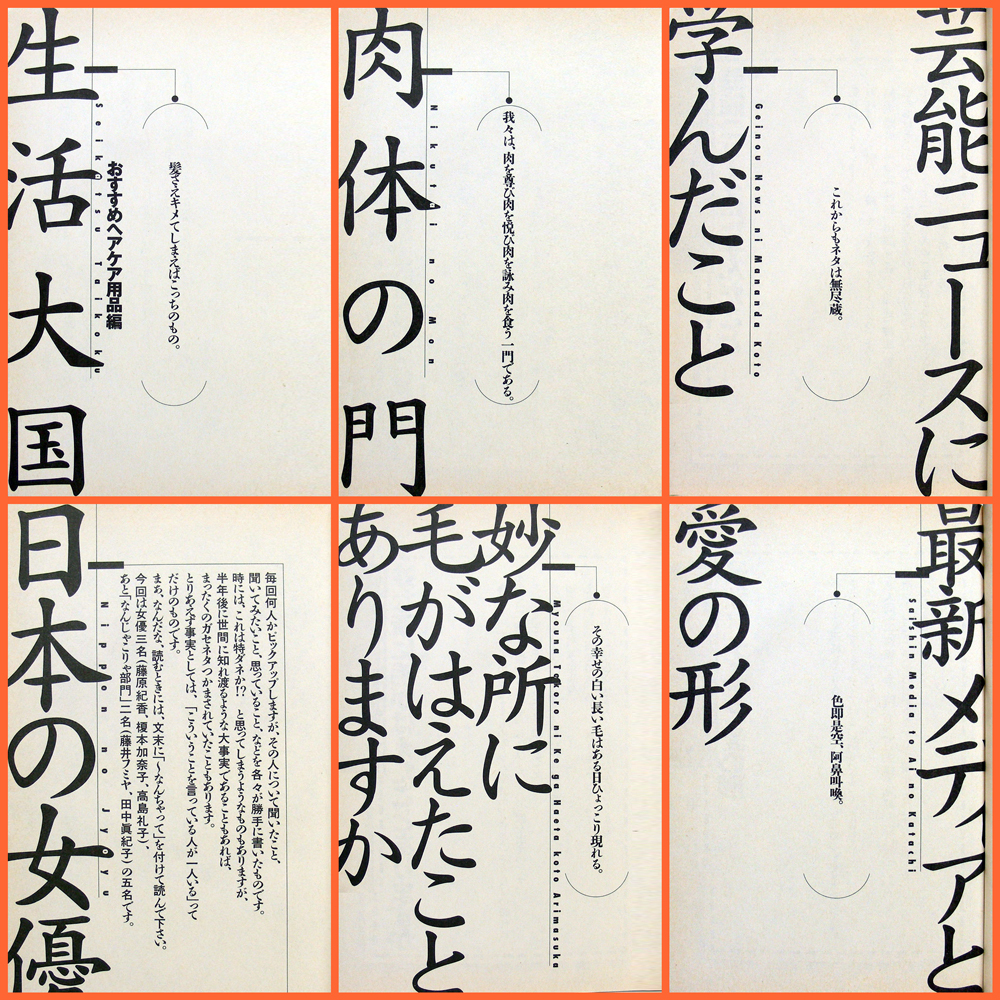 生活大国
Seikatsu Taikoku
おすすめヘアケア用品編
髪さえキメてしまえばこっちのもの。
肉体の門
Nikutai no Mon
我々は、肉を尊び肉を悦び肉を詠み肉を食う一門である。
芸能ニュースに
学んだこと
Geinou News ni Mananda Koto
これからもネタは無尽蔵。
日本の女優
Nippon no Jyoyu
毎回何人かピックアップしますが、その人について聞いたこと、
聞いてみたいこと、思っていること、などを各々が勝手に書いたものです。
時には、これは特ダネか!?　と思ってしまうようなものもありますが、
半年後に世間に知れ渡るような大事実であることもあれば、
まったくのガセネタつかまされていたこともあります。
とりあえず事実としては、「こういうことを言っている人が一人いる」って
だけのものです。
まぁ、なんだな、読むときには、文末に「〜なんちゃって」を付けて読んで下さい。
今回は女優三名(藤原紀香、榎本加奈子、高島礼子)、
あと「なんじゃこりゃ部門」二名(藤井フミヤ、田中眞紀子)の五名です。
妙な所に
毛がはえたこと
ありますか
Myouna Tokoro ni Ke ga Haeta koto Arimasuka
その幸せの白い長い毛はある日ひょっこり現れる。
最新メディアと
愛の形
Saishin Media to Ai no Katachi
色即是空、阿鼻叫喚。